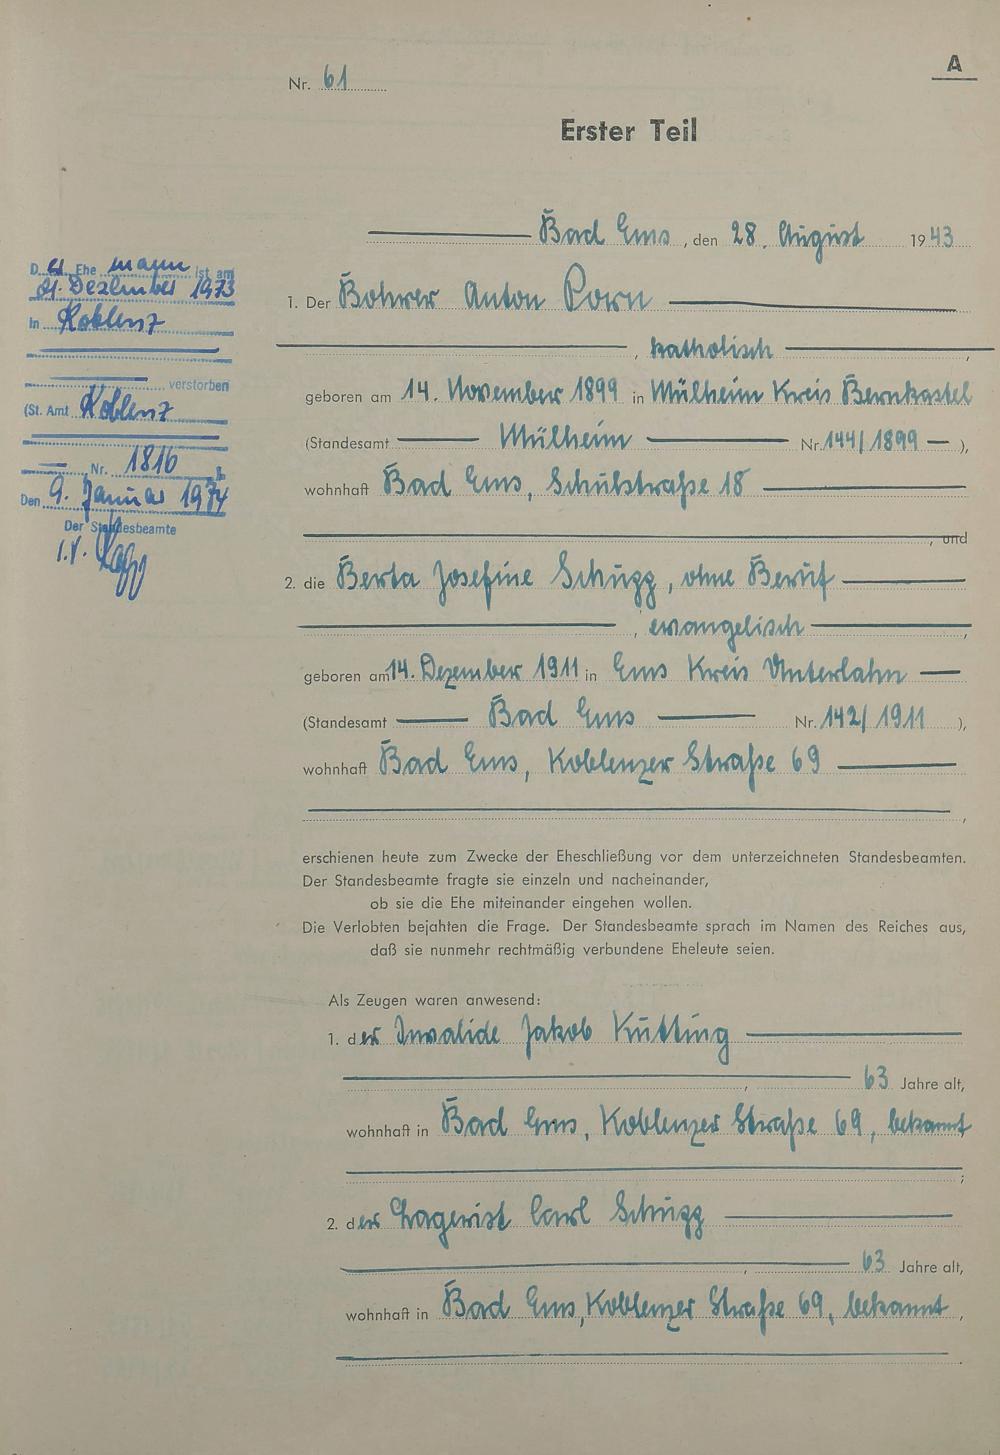 A
Nr. 61
Erster Teil
Bad Ems, den 28. August 1943
1. Der Bohrer Anton Porn
, katholisch,
geboren am 14. November 1899 in Mülheim Kreis Bernkastel
(Standesamt Mülheim Nr. 144/1899),
wohnhaft Bad Ems, Schulstraße 18
, und
2. die Berta Josefine Schugg, ohne Beruf
, evangelisch,
geboren am 14. Dezember 1911 in Ems Kreis Unterlahn
(Standesamt Bad Ems Nr. 142/1911),
wohnhaft Bad Ems, Koblenzer Straße 69
,
erschienen heute zum Zwecke der Eheschließung vor dem unterzeichneten Standesbeamten.
Der Standesbeamte fragte sie einzeln und nacheinander,
ob sie die Ehe miteinander eingehen wollen.
Die Verlobten bejahten die Frage. Der Standesbeamte sprach im Namen des Reiches aus,
daß sie nunmehr rechtmäßig verbundene Eheleute seien.
Als Zeugen waren anwesend:
1. der Invalide Jakob Kutting
, 63 Jahre alt,
wohnhaft in Bad Ems, Koblenzer Straße 69, bekannt
;
2. der Lagerist Carl Schugg
, 63 Jahre alt,
wohnhaft in Bad Ems, Koblenzer Straße 69, bekannt,
.
D er Ehe mann ist am
Dezember 1973
in Koblenz
verstorben
(St. Amt Koblenz
Nr. 1816
Den 9. Januar 1974
Der Standesbeamte
I.V.